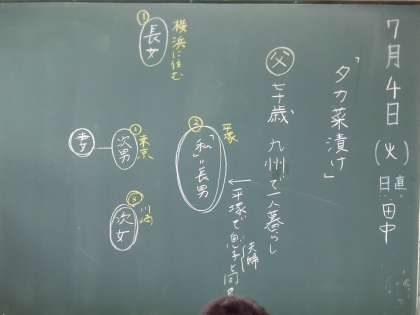 7月4日(火)
日直:田中
「タカ菜漬け」
父 七十歳 九州で一人暮らし
平塚
②
「私」=長男
←平塚で
夫婦
横浜に住む
①
長女
③
東京
次男
妻
川崎
次女